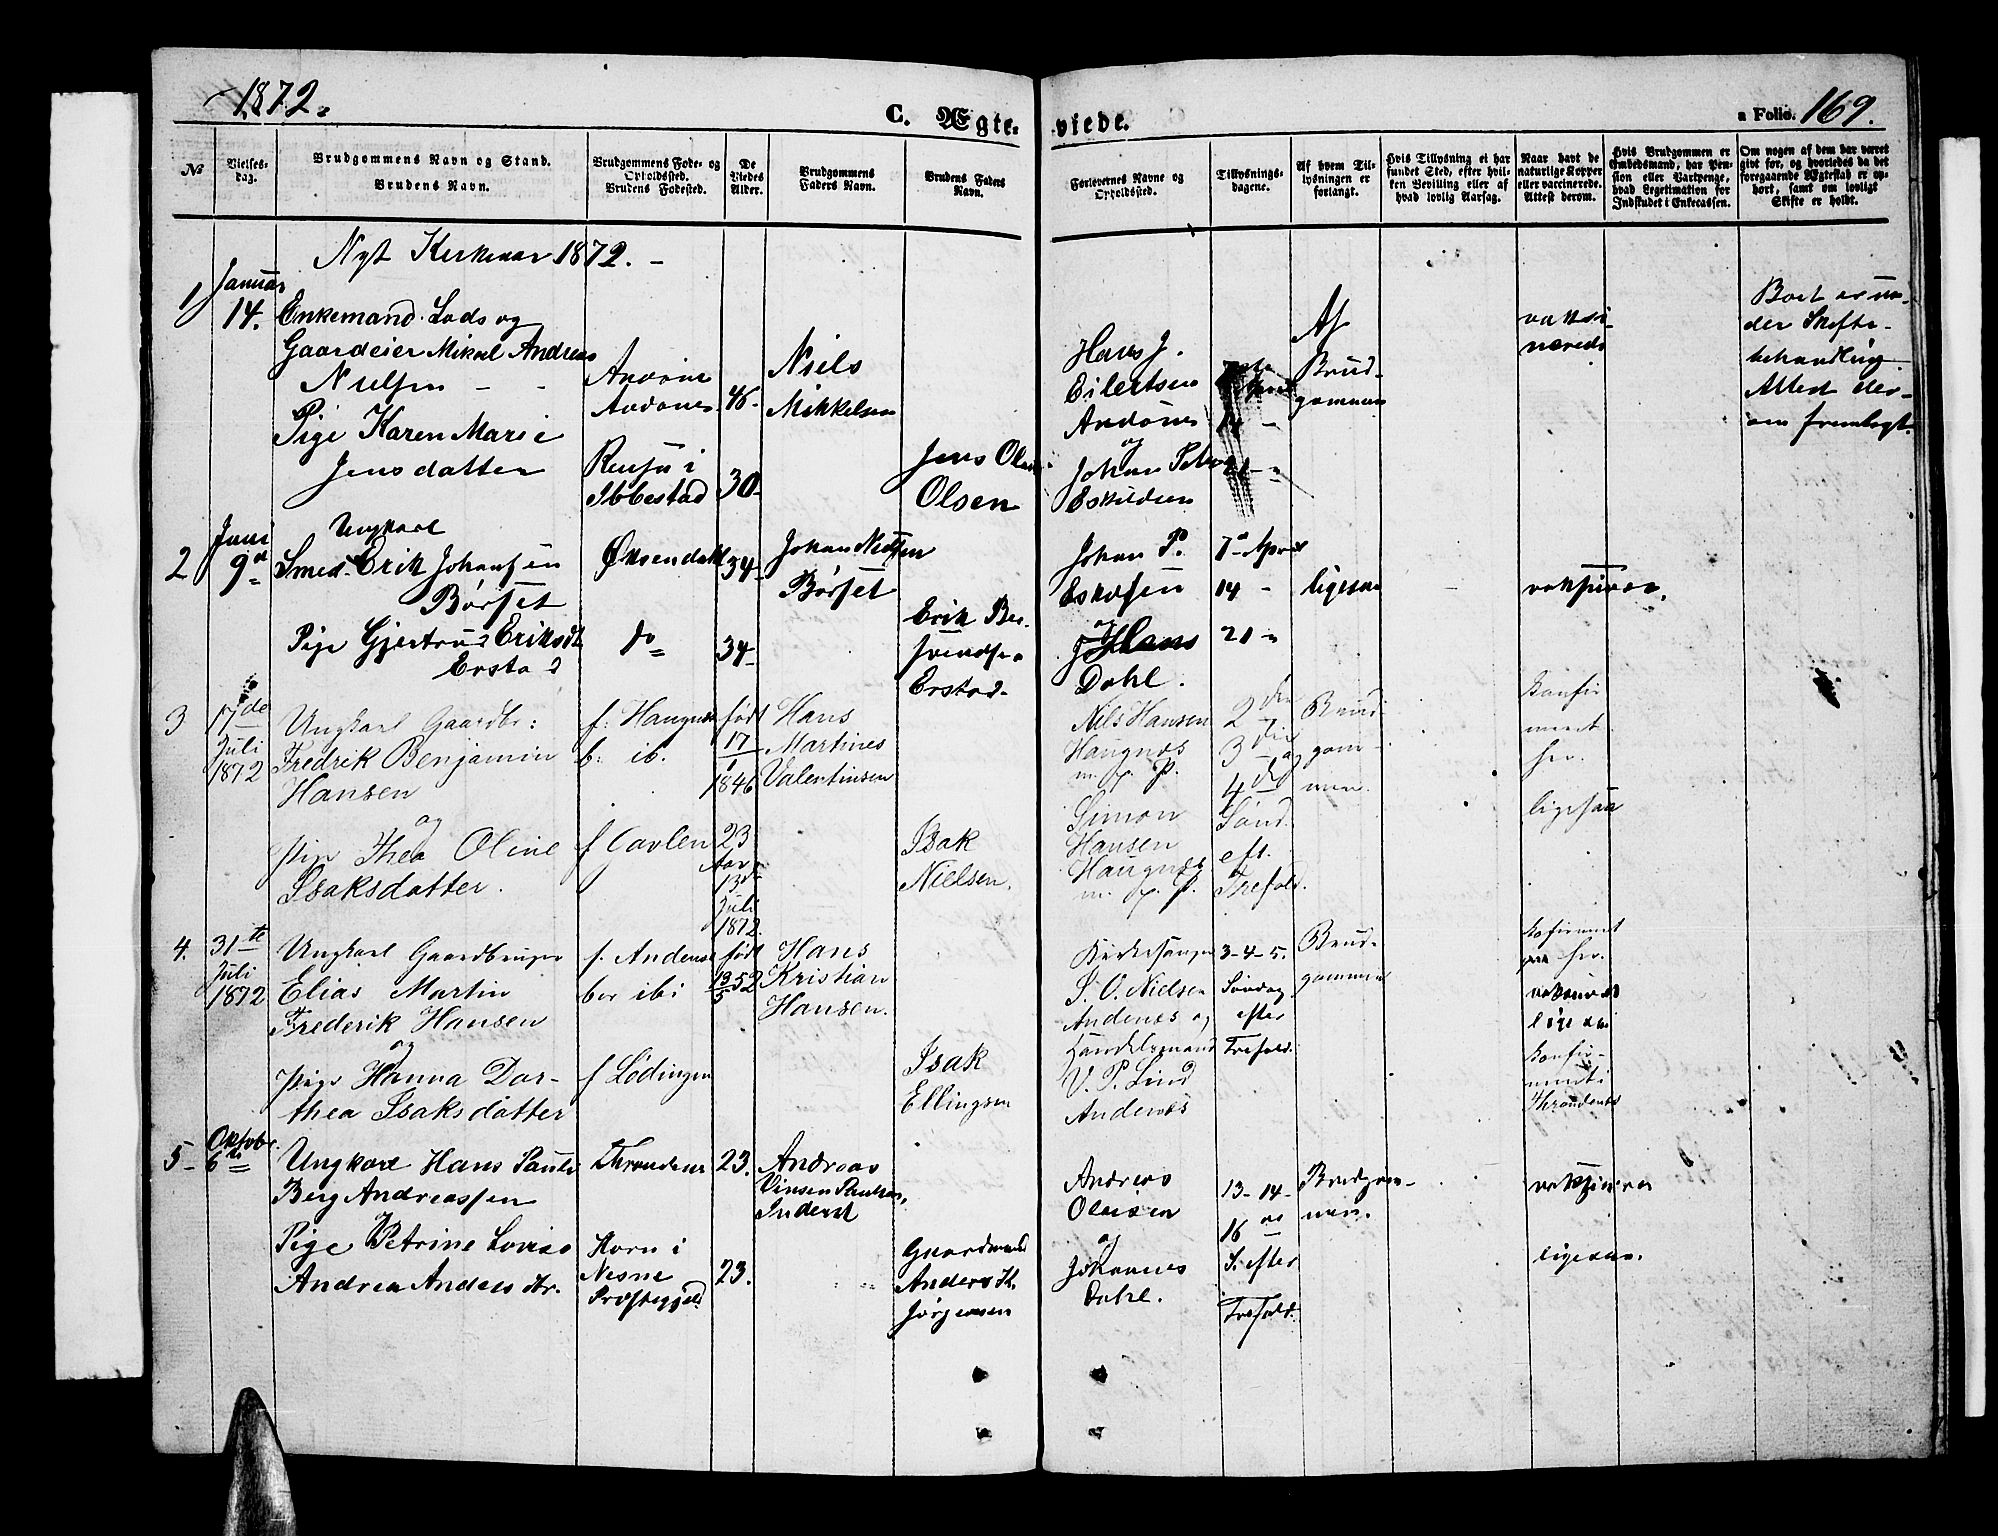 1872.
C. Ægte-
viede.
a Folio. 169.
№
Vielses-
dag.
Brudgommens Navn og Stand.
Brudens Navn.
Brudgommens Føde- og
Opholdssted.
Brudens Fødested.
De
Viedes
Alder.
Brudgommens
Faders Navn.
Brudens Faders
Navn.
Forlovernes Navne og
Opholdssted.
Tillysnings-
dagene.
Af hvem Til-
lysningen er
forlangt.
Hvis Tillysning ei har
fundet Sted, efter hvil-
ken Bevilling eller af
hvad lovlig Aarsag.
Naar havt de
naturlige Kopper
eller vaccinerede.
Attest derom.
Hvis Brudgommen er
Embedsmand, har Pen-
sion eller Vartpenge,
hvad Legitimation for
Indskudet i Enkecassen.
Om nogen af dem har været
gift før, og hvorledes da det
foregaaende Ægteskab er op-
hørt, samt om lovligt
Skifte er holdt.
Nyt Kirkeaar 1872. -
1
Januar
14.
Enkemand. Lods og
Gaardeier Mikal Andreas
Nielsen - -
Pige Karen Marie
Jensdatter
Andøne
Andønes
i
Ibbestad
46.
30-
Niels
Mikkelsen
Jens Olai
Olsen
Hans J.
Eilertsen
Andønes
og
Johan Peter
Eskildsen
14 -
Af
Brud-
gommen
vaksi-
nerede
Boet er un-
der Skifte-
behandling
Attest der-
om fremlagt.
2
Juni
9de
Ungkarl
Smed Erik Johansen
Børset
Pige Gjertrud Eriksdt
Erstad
Øksendahl
do
34-
34-
Johan Nielsen
Børset
Erik Be-
Erstad-
Johan P.
Eskelsen
og
J. Hans
Dahl.
7de April
14 -
21 -
ligesaa
vaksineret.
3
17de
Juli
1872
Ungkarl Gaardbr:
Fredrik Benjamin
Hansen
og
pige Thea Oline
Isaksdatter.
f. Haugnes
b: ib.
f Gavlen
født
17
1
1846
23
Aar
13de
Juli
1872.
Hans
Martines
Valentinsen
Isak
Nielsen.
Nils Hansen
Haugnes
m. p. P.
Simon
Hansen
Haugnes
m. p. P.
2den
3die og
4de
Sønd.
eft.
Trefold.
Brud-
gom-
men.
konfir
meret
her.
ligesaa
4.
31te
Juli
1872
Ungkarl Gaardbruger
Elias Martin
Frederik Hansen
og
pige Hanna Dor-
thea Isaksdatter
f. Andenes
bor ibi
f Lødingen
født
13/5 52
Hans
Kristian
Hansen.
Isak
Ellingsen
Kirkesanger
S. O. Nielsen
Andenes og
Handelsmand
V. P. Lind
Andenes
3-4-5.
Søndag
efter
Trefold.
Brud-
gommen
kofirmeret
her.
vaksineret
ligesaa
konfir-
meret i
Throndenes
5-
Oktober
6te
Ungkarl Hans Pauls
Berg Andreassen
Pige Petrine Lovise
Andrea Andersdtr.
Throndenes
Horn i
Nesne
Præstegjeld
23.
23.
Andreas
Vinsen Paulsen,
Inderst
Gaardmand
Anders K.
Jørgensen
Andreas
Olaisen
og
Johannes
Dahl.
13-14-
16de
S. efter
Trefold.
Brudgom-
men.
vaksineret
ligesaa.